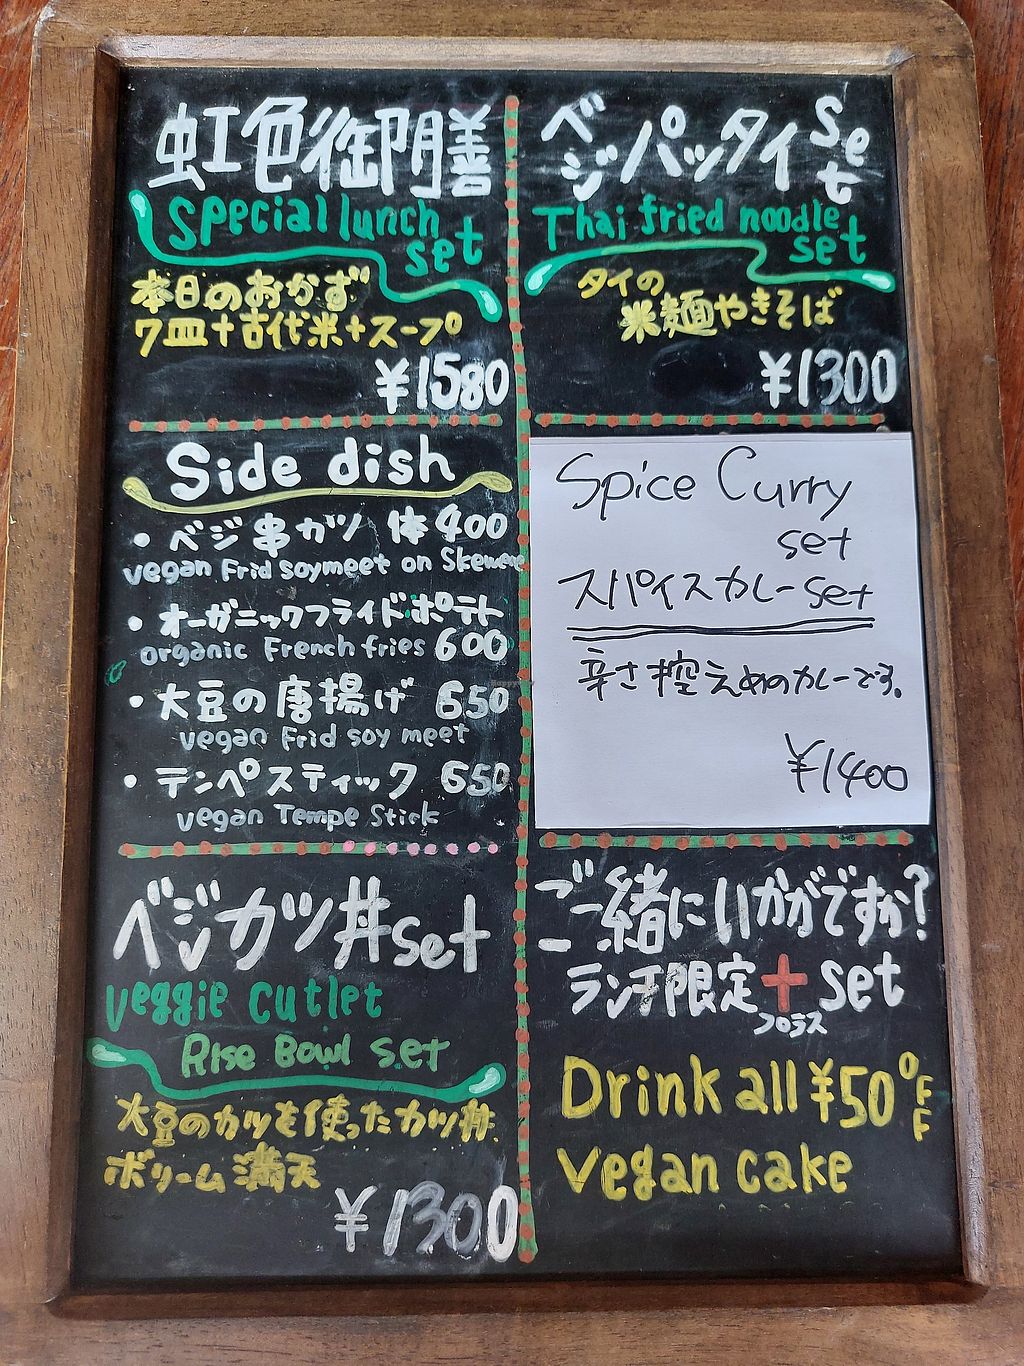 虹色御膳
Special lunch
set
本日のおかず
7皿+古代米+スープ
¥1580
Side dish
・ベジ串カツ 1本400
vegan Frid soymeet on Skewere
・オーガニックフライドポテト
organic French fries 600
・大豆の唐揚げ 650
vegan Frid soy meet
・テンペスティック 650
vegan Tempe Stick
ベジカツ丼set
veggie cutlet
Rise Bowl set
大豆のカツを使ったカツ丼
ボリーム満天
¥1300
ベジパッタイset
Thai fried noodle
set
タイの
米麺やきそば
¥1300
Spice Curry
set
スパイスカレーset
辛さ控えめのカレーです。
¥1400
ご一緒にいかがですか?
ランチ限定+set
プラス
Drink all ¥50 OFF
vegan cake